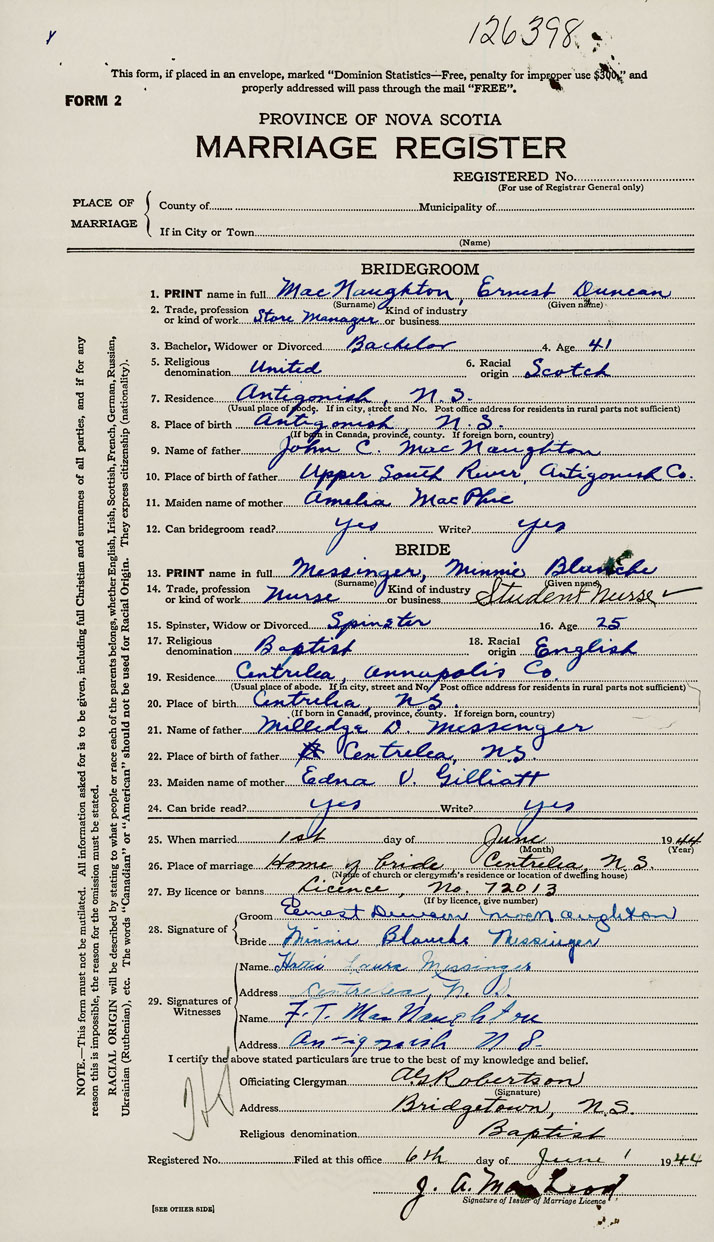 126398
This form, if placed in an envelope, marked "Dominion Statistics—Free, penalty for improper use $300," and
properly addressed will pass through the mail "FREE".
FORM 2
PROVINCE OF NOVA SCOTIA
MARRIAGE REGISTER
REGISTERED No.
(For use of Registrar General only)
PLACE OF MARRIAGE
County of Municipality of
If in City or Town
(Name)
BRIDEGROOM
1. PRINT name in full MacNaughton, Ernest Duncan
(Surname) (Given name)
2. Trade, profession or kind of work Store Manager Kind of industry or business
3. Bachelor, Widower or Divorced Bachelor 4. Age 41
5. Religious denomination United 6. Racial origin Scotch
7. Residence Antigonish, N.S.
(Usual place of abode. If in city, street and No. Post office address for residents in rural parts not sufficient)
8. Place of birth Antigonish, N.S.
(If born in Canada, province, county. If foreign born, country)
9. Name of father John C. MacNaughton
10. Place of birth of father Upper South River, Antigonish Co.
11. Maiden name of mother Amelia MacPhie
12. Can bridegroom read? yes Write? yes
BRIDE
13. PRINT name in full Messinger, Minnie Blanche
(Surname) (Given name)
14. Trade, profession or kind of work Nurse Kind of industry or business Student Nurse
15. Spinster, Widow or Divorced Spinster 16. Age 25
17. Religious denomination Baptist 18. Racial origin English
19. Residence Centrelea, Annapolis Co.
(Usual place of abode. If in city, street and No. Post office address for residents in rural parts not sufficient)
20. Place of birth Centrelea, N.S.
(If born in Canada, province, county. If foreign born, country)
21. Name of father Milledge D. Messinger
22. Place of birth of father Centrelea, N.S.
23. Maiden name of mother Edna V. Gilliatt
24. Can bride read? yes Write? yes
25. When married 1st day of June 1944
(Month) (Year)
26. Place of marriage Home of bride Centrelea, N.S.
(Name of church or clergyman's residence or location of dwelling house)
27. By licence or banns Licence, No. 72013
(If by licence, give number)
28. Signature of
Groom Ernest Duncan MacNaughton
Bride Minnie Blanche Messinger
29. Signatures of Witnesses
Name Laura Messinger
Address Centrelea, N.S.
Name F. T. MacNaughton
Address Antigonish N S.
I certify the above stated particulars are true to the best of my knowledge and belief.
Officiating Clergyman Robertson
(Signature)
Address Bridgetown, N.S.
Religious denomination Baptist
Registered No. Filed at this office 6th day of June 1944
J. A. MacLeod
Signature of Issuer of Marriage Licence
[SEE OTHER SIDE]
NOTE.—This form must not be mutilated. All information asked for is to be given, including full Christian and surnames of all parties, and if for any
reason this is impossible, the reason for the omission must be stated.
RACIAL ORIGIN will be described by stating to what people or race each of the parents belongs, whether English, Irish, Scottish, French, German, Russian,
Ukrainian (Ruthenian), etc. The words "Canadian" or "American" should not be used for Racial Origin. They express citizenship (nationality).